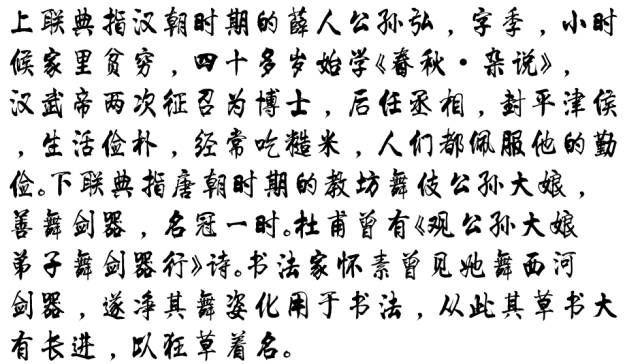 上联典指汉朝时期的薛人公孙弘，字季，小时
候家里贫穷，四十多岁始学《春秋·杂说》，
汉武帝两次征召为博士，后任丞相，封平津侯
，生活俭朴，经常吃糙米，人们都佩服他的勤
俭。下联典指唐朝时期的教坊舞伎公孙大娘，
善舞剑器，名冠一时。杜甫曾有《观公孙大娘
弟子舞剑器行》诗。书法家怀素曾见她舞西河
剑器，遂净其舞姿化用于书法，从此其草书大
有长进，以狂草着名。